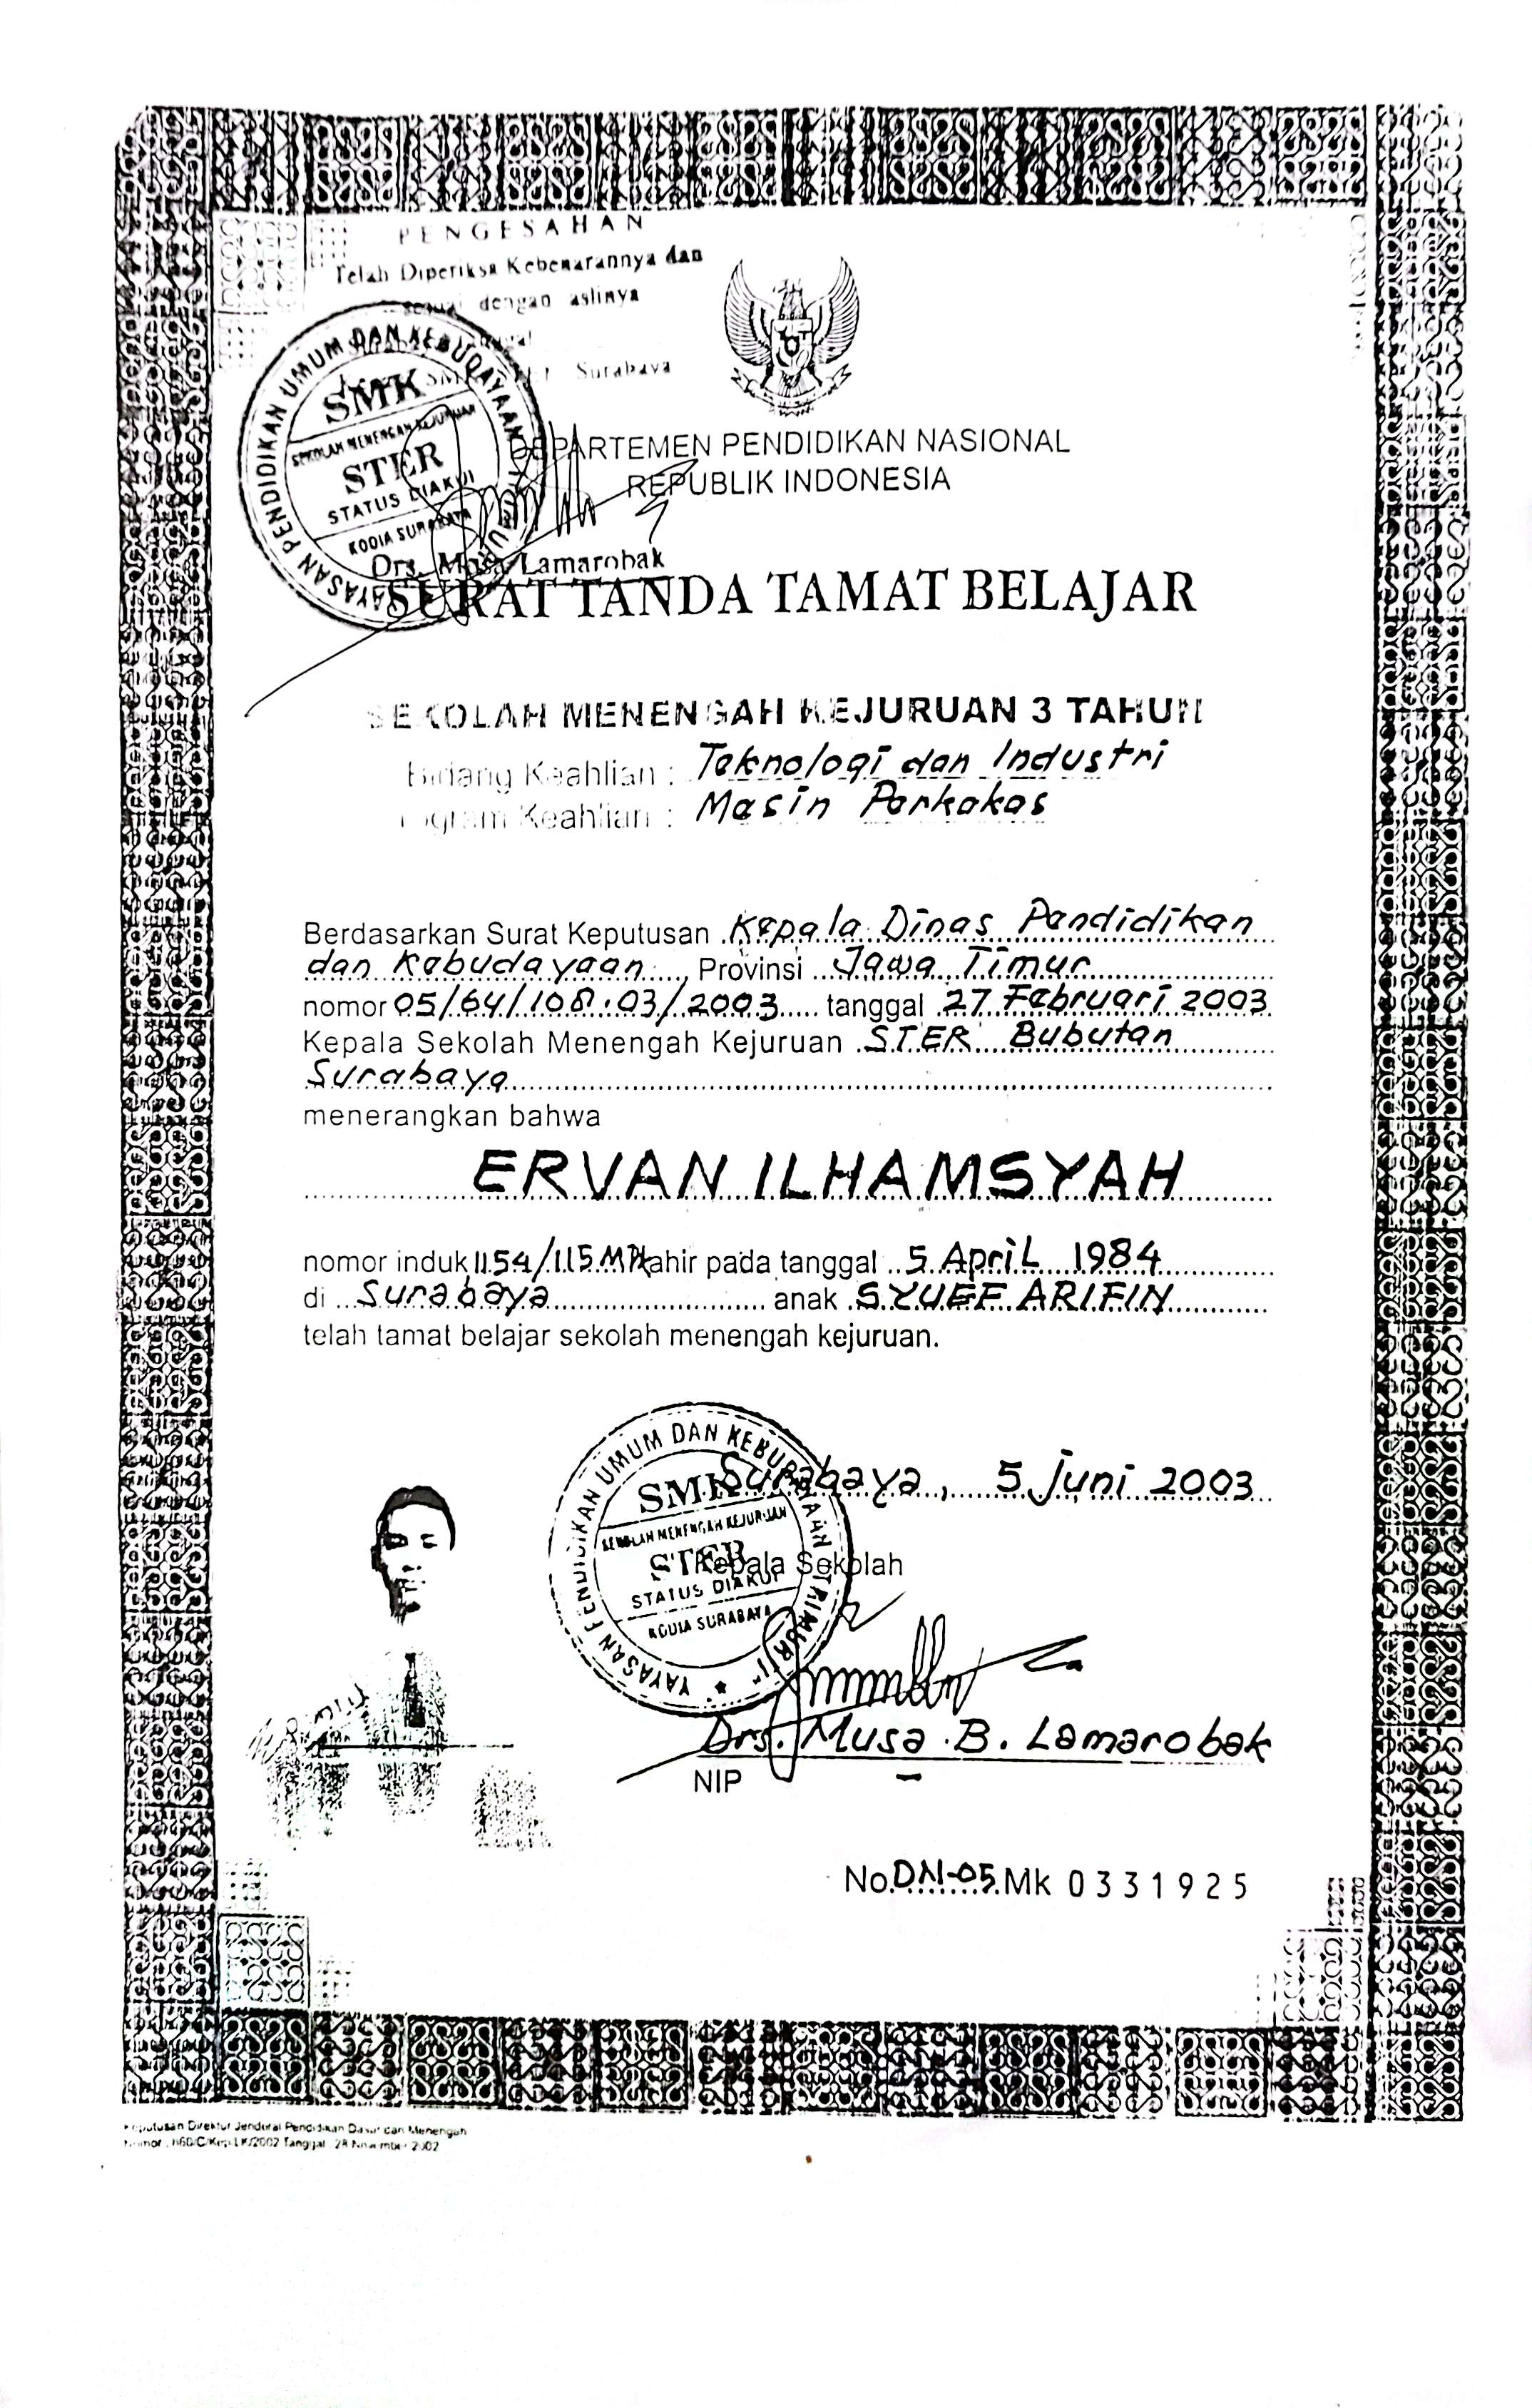 PENGESAHAN
Telah Diperiksa Kebenarannya dan
dengan aslinya
Surabaya
YAYASAN PENDIDIKAN UMUM DAN KEBUDAYAAN
SMK
SEKOLAH MENENGAH KEJURUAN
STER
STATUS DIAKUI
KODIA SURABAYA
Drs. Musa Lamarobak
DEPARTEMEN PENDIDIKAN NASIONAL
REPUBLIK INDONESIA
SURAT TANDA TAMAT BELAJAR
SEKOLAH MENENGAH KEJURUAN 3 TAHUN
Bidang Keahlian : Teknologi dan Industri
Program Keahlian : Mesin Perkakas
Berdasarkan Surat Keputusan Kepala Dinas Pendidikan
dan Kebudayaan, Provinsi Jawa Timur
nomor 05/64/108.03/2003 tanggal 27 Februari 2003
Kepala Sekolah Menengah Kejuruan STER Bubutan
Surabaya
menerangkan bahwa
ERVAN ILHAMSYAH
nomor induk 1154/115.MPK lahir pada tanggal 5 April 1984
di Surabaya anak SYUEF ARIFIN
telah tamat belajar sekolah menengah kejuruan.
Surabaya, 5 Juni 2003
YAYASAN PENDIDIKAN UMUM DAN KEBUDAYAAN "TRIMURTI"
SMK
SEKOLAH MENENGAH KEJURUAN
STER
STATUS DIAKUI
KODIA SURABAYA
Kepala Sekolah
Drs. Musa B. Lamarobak
NIP -
No. DN-05 Mk 0331925
Keputusan Direktur Jenderal Pendidikan Dasar dan Menengah
Tanggal 28 November 2002